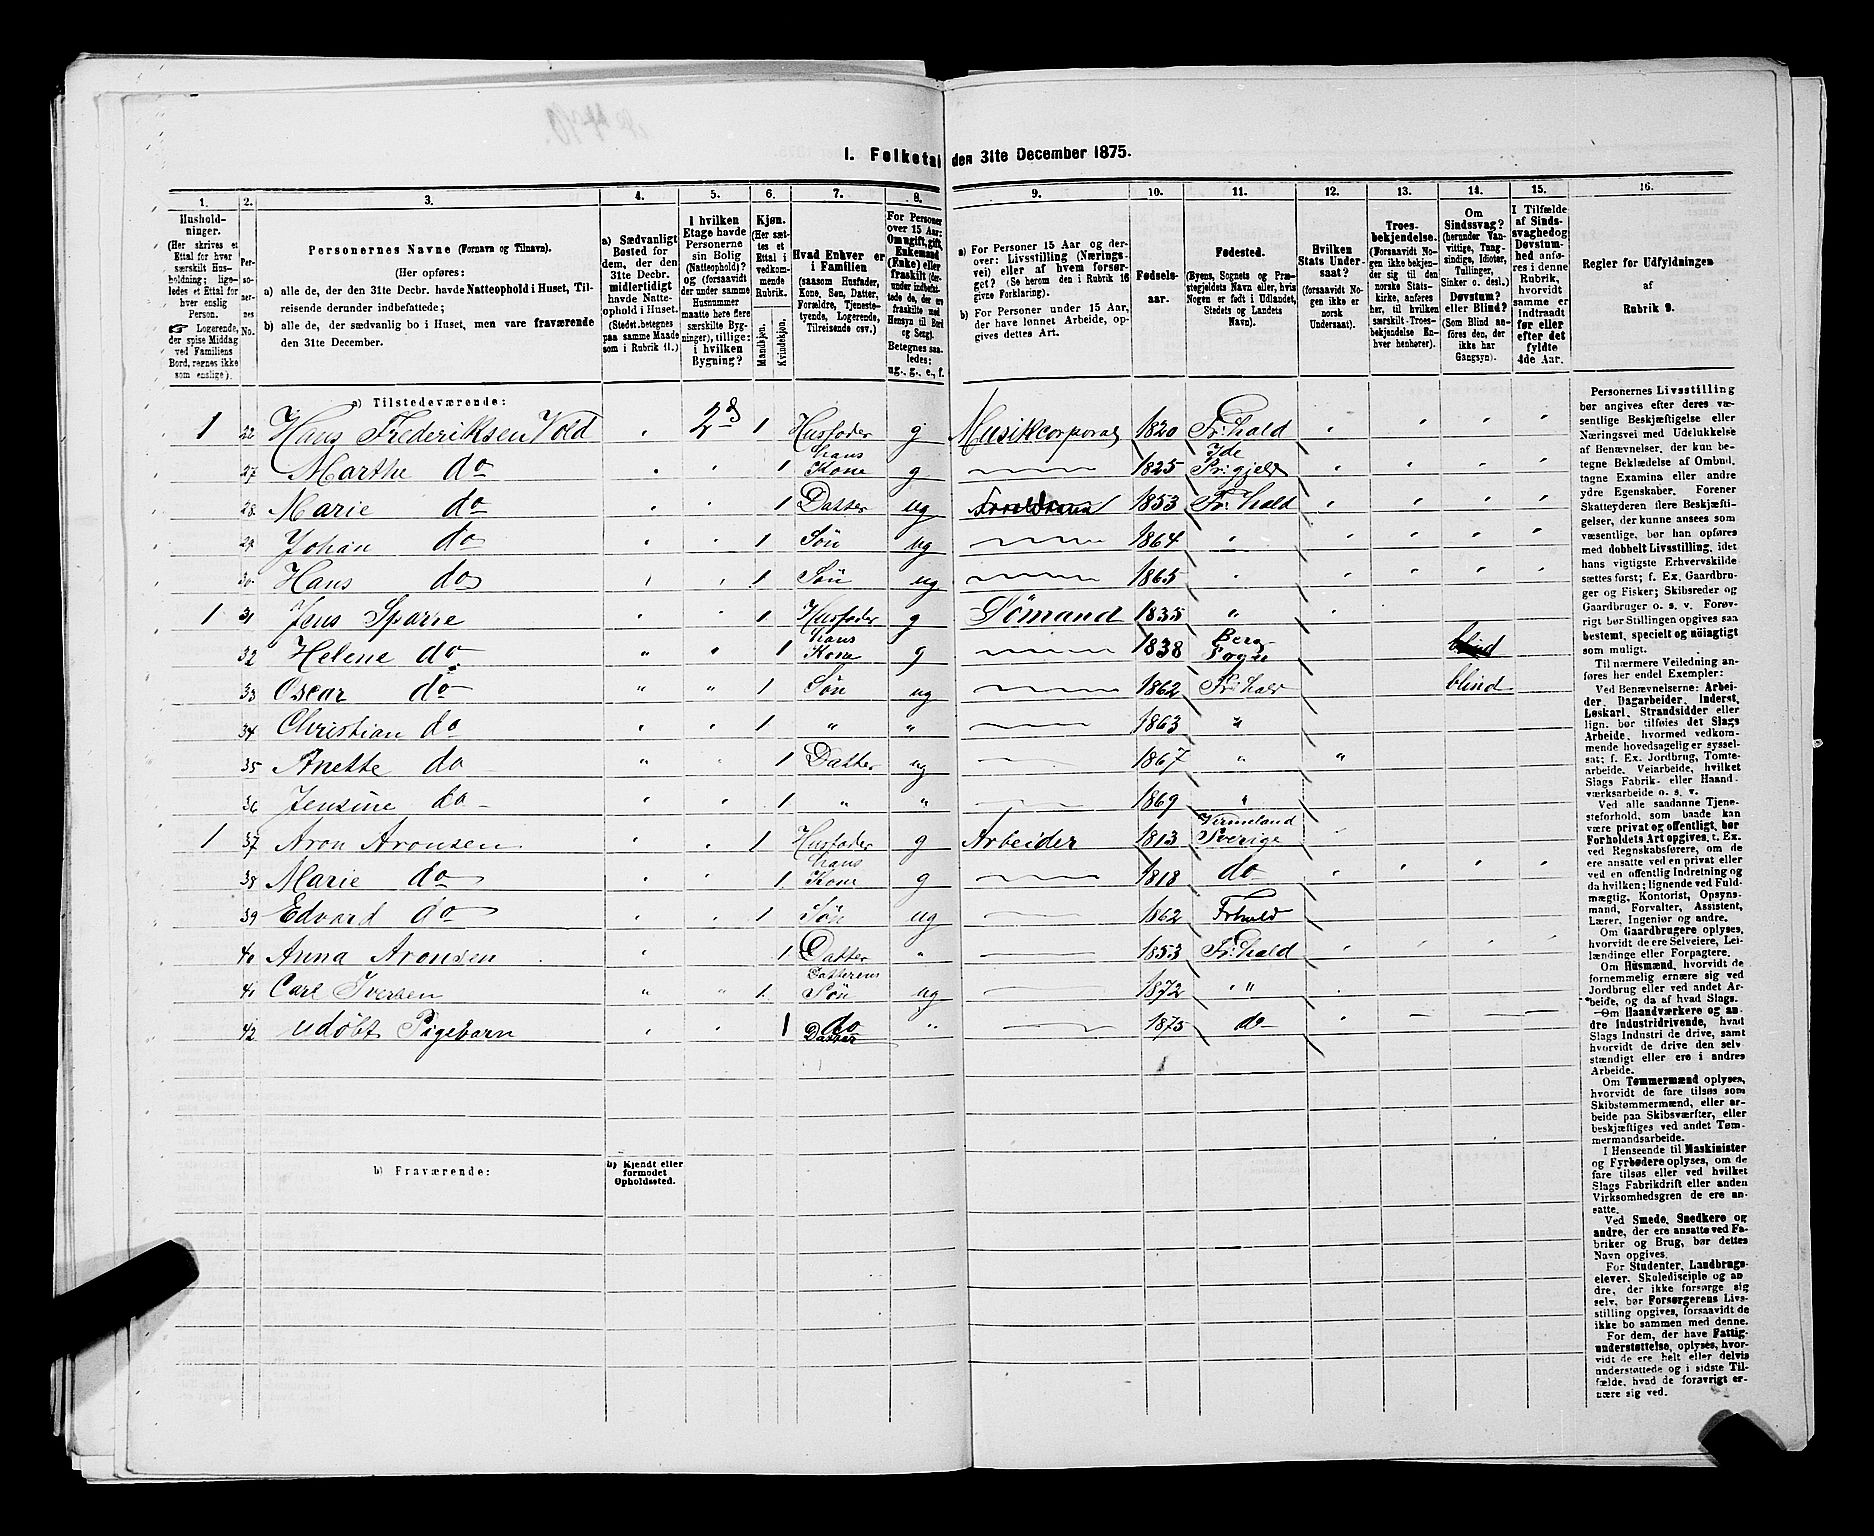 I. Folketal den 31te December 1875.
1. 2. 3. 4. 5. 6. 7. 8. 9. 10. 11. 12. 13. 14. 15. 16.
Hushold-
ninger.
(Her skrives et
Ettal for hver
særskilt Hus-
holdning; lige-
ledes et Ettal for
hver enslig
Person.
☞ Logerende,
der spise Middag
ved Familiens
Bord, regnes ikke
som enslige).
Per-
so-
ner-
nes
No.
Personernes Navne (Fornavn og Tilnavn).
(Her opføres:
a) alle de, der den 31te Decbr. havde Natteophold i Huset, Til-
reisende derunder indbefattede;
b) alle de, der sædvanlig bo i Huset, men vare fraværende
den 31te December.
a) Sædvanligt
Bosted for
dem, der den
31te Decbr.
midlertidigt
havde Natte-
ophold i Huset.
(Stedet betegnes
paa samme Maade
som i Rubrik 11.)
I hvilken
Etage havde
Personerne
sin Bolig
(Natteophold)?
(forsaavidt
der under samme
Husnummer
maatte høre flere
særskilte Byg-
ninger), tillige:
i hvilken
Bygning?
Kjøn.
(Her sæt-
tes et
Ettal i
vedkom-
mende
Rubrik.
Mandkjøn.
Kvindekjøn.
Hvad Enhver er
i Familien
(saasom Husfader,
Kone, Søn, Datter,
Forældre, Tjeneste-
tyende, Logerende,
Tilreisende osv.)
For Personer
over 15 Aar:
Om ugift, gift,
Enkemand
(Enke) eller
fraskilt (der-
under indbefat-
tede de, der ere
fraskilte med
Hensyn til Bord
og Seng).
Betegnes saa-
ledes:
ug., g., e., f.
a) For Personer 15 Aar og der-
over: Livsstilling (Nærings-
vei) eller af hvem forsør-
get? (Se herom den i Rubrik 16
givne Forklaring).
b) For Personer under 15 Aar,
der have lønnet Arbeide, op-
gives dettes Art.
Fødsels-
aar.
Fødested.
(Byens, Sognets og Præ-
stegjeldets Navn eller, hvis
Nogen er født i Udlandet,
Stedets og Landets
Navn).
Hvilken
Stats Under-
saat?
(forsaavidt No-
gen ikke er
norsk
Undersaat).
Troes-
bekjendelse.
(Forsaavidt No-
gen ikke bekjen-
der sig til den
norske Stats-
kirke, anføres
her, til hvilken
særskilt-Troes-
bekjendelse En-
hver henhører).
Om
Sindssvag?
(herunder Van-
vittige, Tung-
sindige, Idioter,
Tullinger,
Sinker o. desl.)
Døvstum?
eller Blind?
(Som Blind an-
føres den, der
ikke har
Gangsyn).
I Tilfælde
af Sinds-
svaghed og
Døvstum-
hed anfø-
res i denne
Rubrik,
hvorvidt
samme er
indtraadt
før eller
efter det
fyldte
4de Aar.
Regler for Udfyldningen
af
Rubrik 9.
a) Tilstedeværende:
1 Hans Frederiksen Vold 2d 1 Husfader g Musikcorporal 1820 Fr:hald
27 Marthe do 1 hans Kone g 1825 Ide Pr:gjeld
28 Marie do 1 Datter ug 1853 Fr:hald
29 Johan do 1 Søn ug 1864 "
30 Hans do 1 Søn ug 1865
1 31 Jens Sparre 1 Husfader g Sømand 1835 "
32 Helene do 1 hans Kone g 1838 Berg Sogn blind
33 Oscar do 1 Søn ug 1862 Fr:hald blind
34 Christian do 1 " " 1863 "
35 Anette do 1 Datter ug 1867 " "
36 Jensine do 1 " " 1869 "
1 37 Aron Aronsen 1 Husfader g Arbeider 1813 Vermeland Sverige
38 Marie do 1 hans Kone g 1818 do
39 Edvard do 1 Søn ug 1862 Frhald
40 Anna Aronsen 1 Datter " 1853 Fr:hald
41 Carl Iversen 1 Datterens Søn ug 1872 "
42 udøbt Pigebarn 1 do Datter " 1875 do
b) Fraværende:
b) Kjendt eller
formodet
Opholdssted.
Personernes Livsstilling
bør angives efter deres væ-
sentlige Beskjæftigelse eller
Næringsvei med Udelukkelse
af Benævnelser, der kun be-
tegne Beklædelse af Ombud,
tagne Examina eller andre
ydre Egenskaber. Forener
Skatteyderen flere Beskjæfti-
gelser, der kunne ansees som
væsentlige, bør han opføres
med dobbelt Livsstilling, idet
hans vigtigste Erhvervskilde
sættes først; f. Ex. Gaardbru-
ger og Fisker; Skibsreder og
Gaardbruger o. s. v. Forøv-
rigt bør Stillingen opgives saa
bestemt, specielt og nöiagtigt
som muligt.
Til nærmere Veiledning an-
føres her endel Exempler:
Ved Benævnelserne: Arbei-
der, Dagarbeider, Inderst,
Løskarl, Strandsidder eller
lign. bør tilføies det Slags
Arbeide, hvormed vedkom-
mende hovedsagelig er syssel-
sat; f. Ex. Jordbrug, Tomte-
arbeide, Veiarbeide, hvilket
Slags Fabrik- eller Haand-
værksarbeide o. s. v.
Ved alle saadanne Tjene-
steforhold, som baade kan
være privat og offentligt, bør
Forholdets Art opgives, t. Ex.
ved Regnskabsførere, om de
ere ansatte ved en privat eller
ved en offentlig Indretning og
da hvilken; lignende ved Fuld-
mægtig, Kontorist, Opsyns-
mand, Forvalter, Assistent,
Lærer, Ingeniør og andre.
Om Gaardbrugere oplyses,
hvorvidt de ere Selveiere, Lei-
lændinge eller Forpagtere.
Om Husmænd, hvorvidt de
fornemmelig ernære sig ved
Jordbrug eller ved andet Ar-
beide, og da af hvad Slags.
Om Haandværkere og an-
dre Industridrivende, hvad
Slags Industri de drive, samt
hvorvidt de drive den selv-
stændigt eller ere i andres
Arbeide.
Om Tømmermænd oplyses,
hvorvidt de fare tilsøs som
Skibstømmermænd, eller ar-
beide paa Skibsværfter, eller
beskjæftiges ved andet Tøm-
mermandsarbeide.
I Henseende til Maskinister
og Fyrbødere oplyses, om de
fare tilsøs eller ved hvilket
Slags Fabrikdrift eller anden
Virksomhedsgren de ere an-
satte.
Ved Smede, Snedkere og
andre, der ere ansatte ved Fa-
briker og Brug, bør dettes
Navn opgives.
For Studenter, Landbrugs-
elever, Skoledisciple og an-
dre, der ikke forsørge sig
selv, bør Forsørgerens Livs-
stilling opgives, forsaavidt de
ikke bo sammen med denne.
For dem, der have Fattig-
understøttelse, oplyses, hvor-
vidt de ere helt eller delvis
understøttede og i sidste Til-
fælde, hvad de forøvrigt er-
nære sig ved.